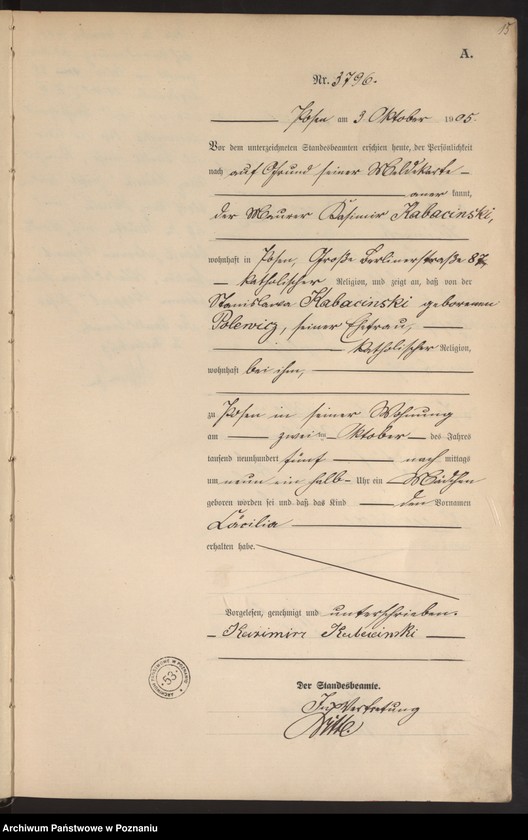 15
A.
Nr. 3796.
Posen am 3 Oktober 1905.
Vor dem unterzeichneten Standesbeamten erschien heute, der Persönlichkeit
nach auf Grund seiner Meldekarte
aner kannt,
der Maurer Kasimir Kabacinski,
wohnhaft in Posen, Große Berlinerstraße 87,
katholischer Religion, und zeigt an, daß von der
Stanislawa Kabacinski geborenen
Polewicz, seiner Ehefrau,
katholischer Religion,
wohnhaft bei ihm,
zu Posen in seiner Wohnung
am zwei ten Oktober des Jahres
tausend neunhundert fünf nach mittags
um neun ein halb Uhr ein Mädchen
geboren worden sei und daß das Kind den Vornamen
Cäcilia
erhalten habe.
Vorgelesen, genehmigt und unterschrieben.
Kazimirz Kabacinski
Der Standesbeamte.
In Vertretung
ARCHIWUM PAŃSTWOWE W POZNANIU
53
Archiwum Państwowe w Poznaniu